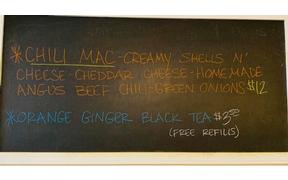 *CHILI MAC-CREAMY SHELLS N'
CHEESE-CHEDDAR CHEESE-HOMEMADE
ANGUS BEEF CHILI-GREEN ONIONS $12
*ORANGE GINGER BLACK TEA $3.50
(FREE REFILLS)